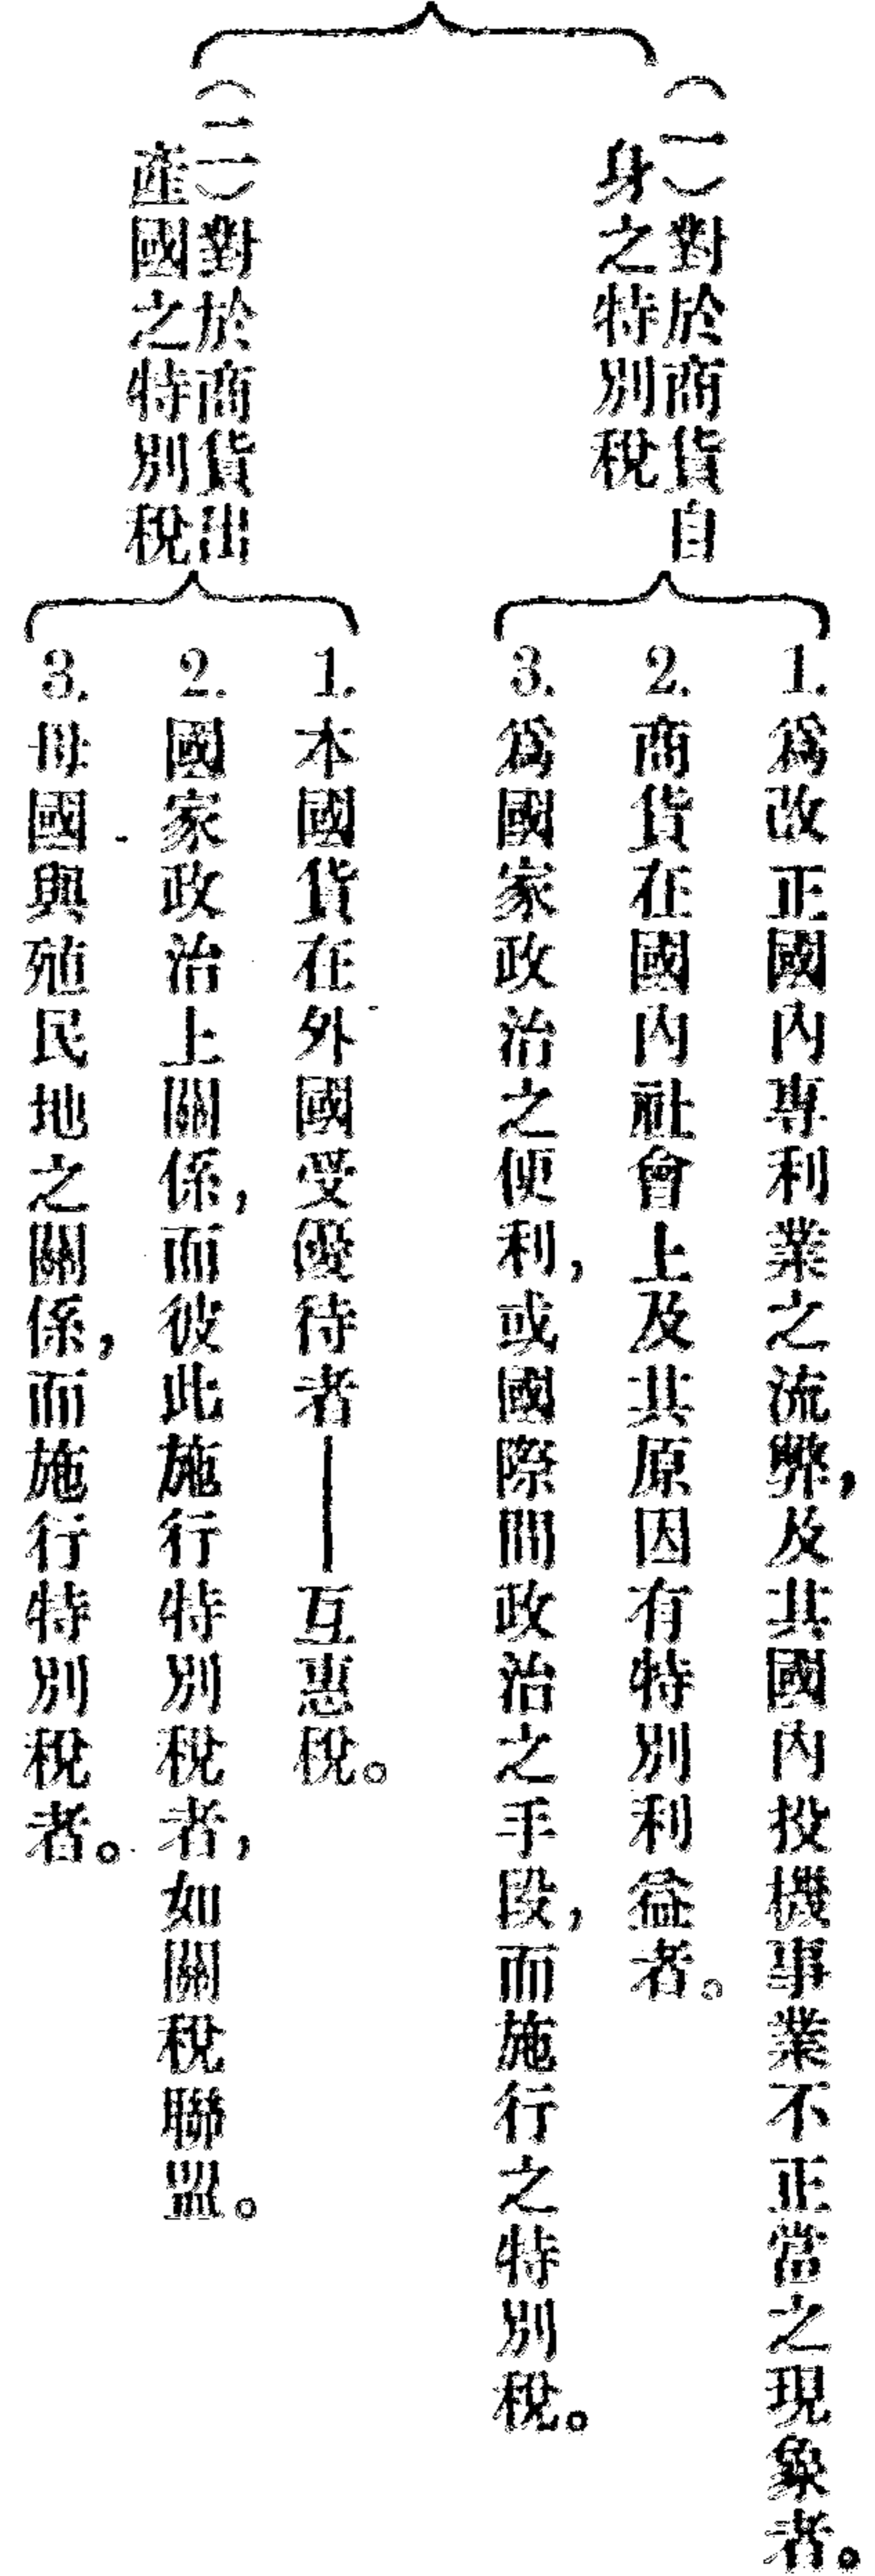 （一）對於商貨自
身之特別稅
1. 爲改正國內專利業之流弊，及其國內投機事業不正當之現象者。
2. 商貨在國內社會上及其原因有特別利益者。
3. 爲國家政治之便利，或國際間政治之手段，而施行之特別稅。
（二）對於商貨出
產國之特別稅
1. 本國貨在外國受優待者——互惠稅。
2. 國家政治上關係，而彼此施行特別稅者，如關稅聯盟。
3. 母國與殖民地之關係，而施行特別稅者。